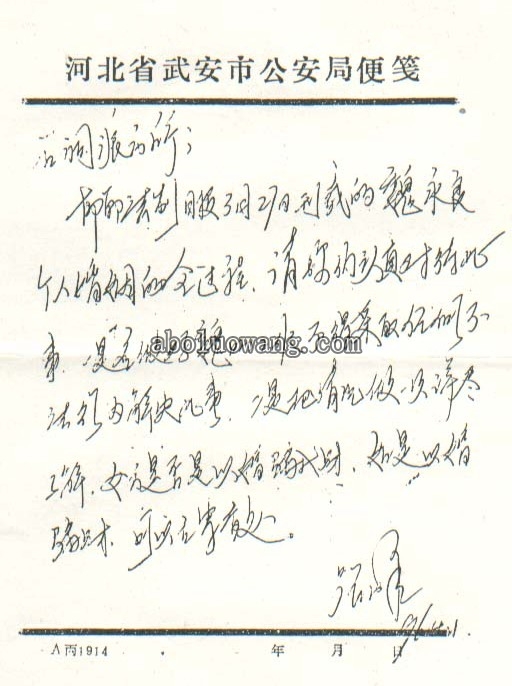 河北省武安市公安局便笺
石洞派出所：
邯郸法制日报3月27日刊载的魏永良
个人婚姻的全过程，请你们认真对待此
事，一是 不得采取任何不
法行为解决此事，二是把情况做一次详尽
了解，女方是否是以婚骗财，如是以婚
骗财，可以 处。
aboluowang.com
A丙1914 年 月 日